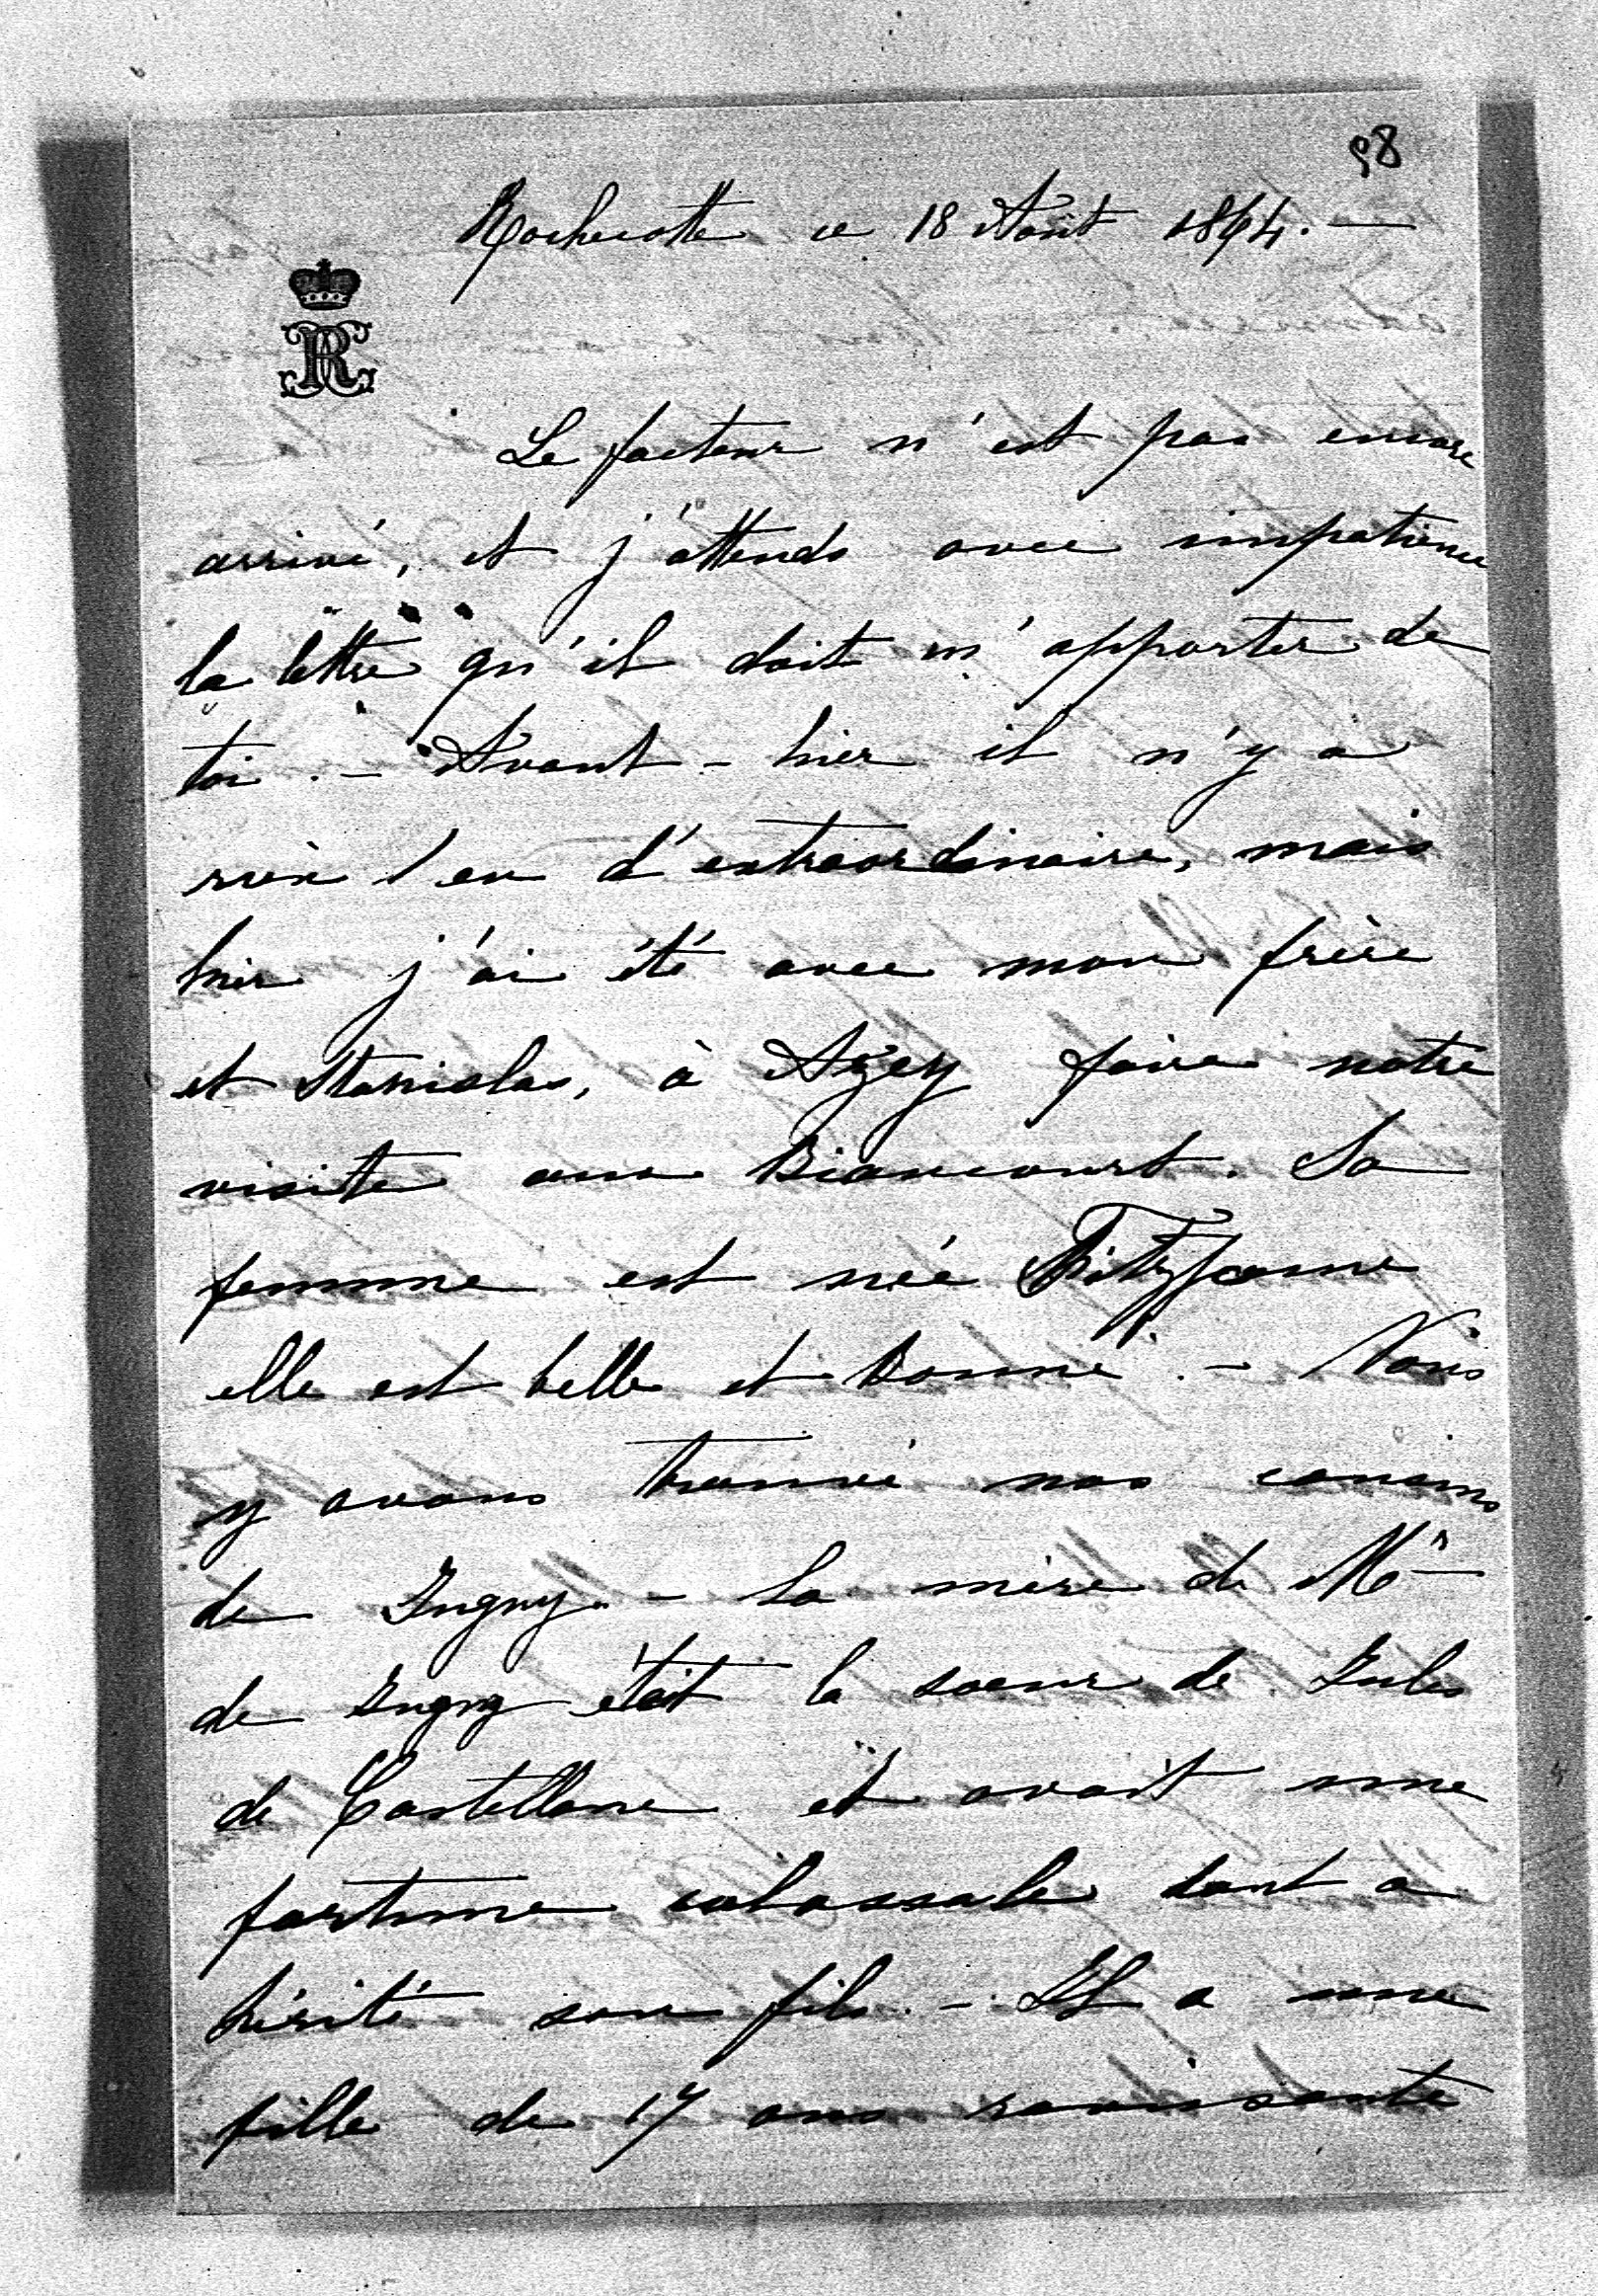 98
Rochecotte ce 18 Août 1864. —
RR
Le facteur n'est pas encore
arrivé, et j'attends avec impatience
la lettre qu'il doit m'apporter de
toi. — Avant-hier il n'y a
rien eu d'extraordinaire, mais
hier j'ai été avec mon frère
et Stanislas, à Azey faire notre
visite aux Biancourt. Sa
femme est née Fitzjame
elle est belle et bonne. — Nous
y avons trouvé nos cousins
de Juigny. — La mère de Mr
de Juigny était la soeur de Jules
de Castellane et avait une
fortune colossale dont a
hérité son fils. — Il a une
fille de 17 ans ravissante